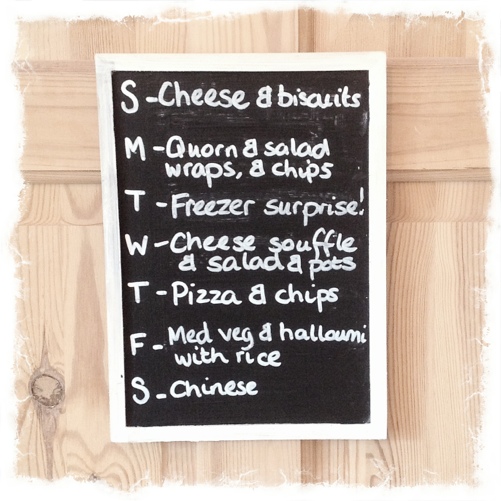 S - Cheese & biscuits
M - Quorn & salad
wraps, & chips
T - Freezer surprise!
W - Cheese souffle
& salad & pots
T - Pizza & chips
F - Med veg & halloumi
with rice
S - Chinese